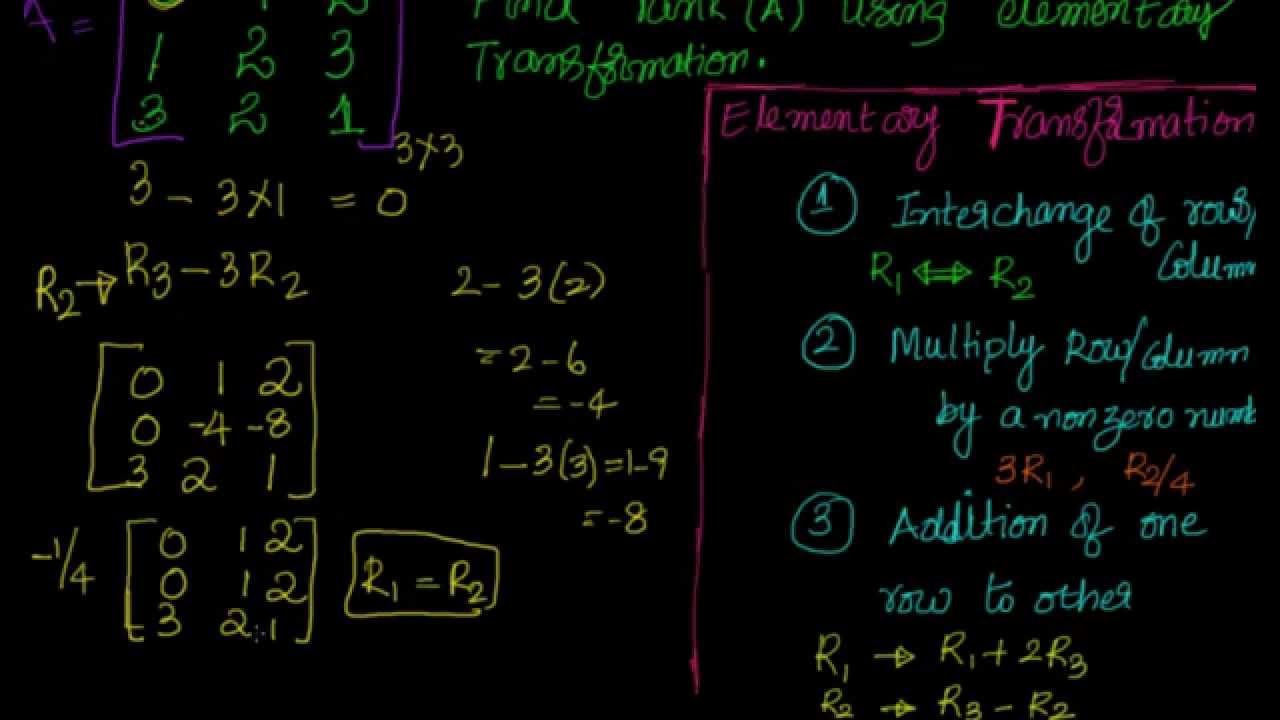 A = [0 1 2
1 2 3
3 2 1] 3×3
Find rank(A) using elementary
Transformation.
3 − 3×1 = 0
R2 → R3 − 3R2
[0 1 2
0 -4 -8
3 2 1]
-1/4 [0 1 2
0 1 2
3 2 1]
R1 = R2
2 − 3(2)
= 2 − 6
= -4
1 − 3(3) = 1-9
= -8
Elementary Transformation
1 Interchange of rows/
Column
R1 ⇔ R2
2 Multiply Row/Column
by a nonzero numb
3R1 , R2/4
3 Addition of one
row to other
R1 → R1 + 2R3
R2 → R3 − R2